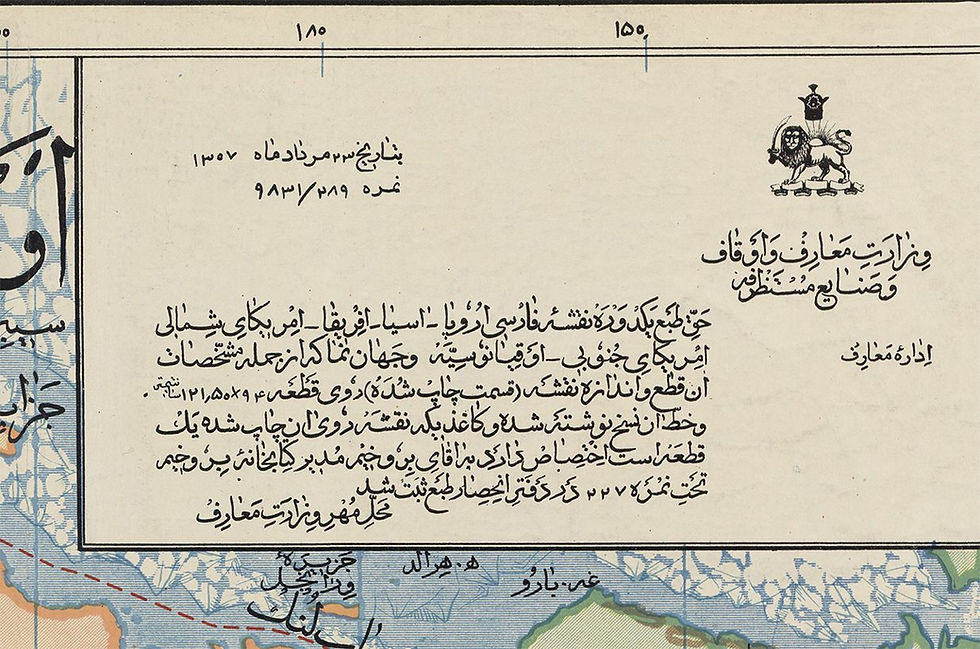 ۱۸۰
۱۵۰
بتاریخ ۲۳ مرداد ماه ۱۳۰۷
نمره ۹۸۳۱/۲۸۹
وزارتِ مَعارفْ وَاَوقاف
وَصَنایعِ مُسْتَظرفه
اِدارهٔ مَعارف
حَقِّ طبع یکدَورَه نقشهٔ فارسی اروپا - اسیا - افریقا - امریکای شمالی
امریکای جنوبی - اوقیانوسیّه وجهان نما که از جمله مشخّصات
ان قطع و اندازه نقشه (قسمت چاپ شده) روی قطعه ۹۴×۱۲۱٫۵۰ سانتیمتر
وخط ان نسخ نوشته شده وکاغذیکه نقشه روی ان چاپ شده یك
قطعه است اختصاص دارد به اقای بروخیم مدیر کتابخانه بروخیم
تحتِ نمره ۲۲۷ در دفتر انحصار طبع ثبت شد
مَحلِّ مُهر وزارتِ مَعارف
جزیرهٔ
ورانجل
ه. هرالد
غه. بارو